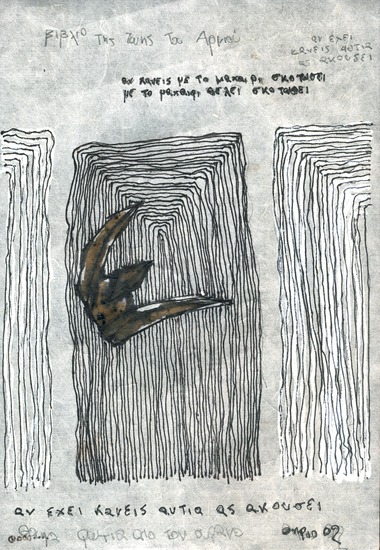 βιβλιο της Ζωης Του Αρνιου
αν εχει
κανεις αυτια
ας ακουσει
αν κανεις με το μαχαιρι σκοτωσει
με το μαχαιρι θελει σκοτωθει
αν εχει κανεις αυτια ας ακουσει
φωτια απο τον ουρανο